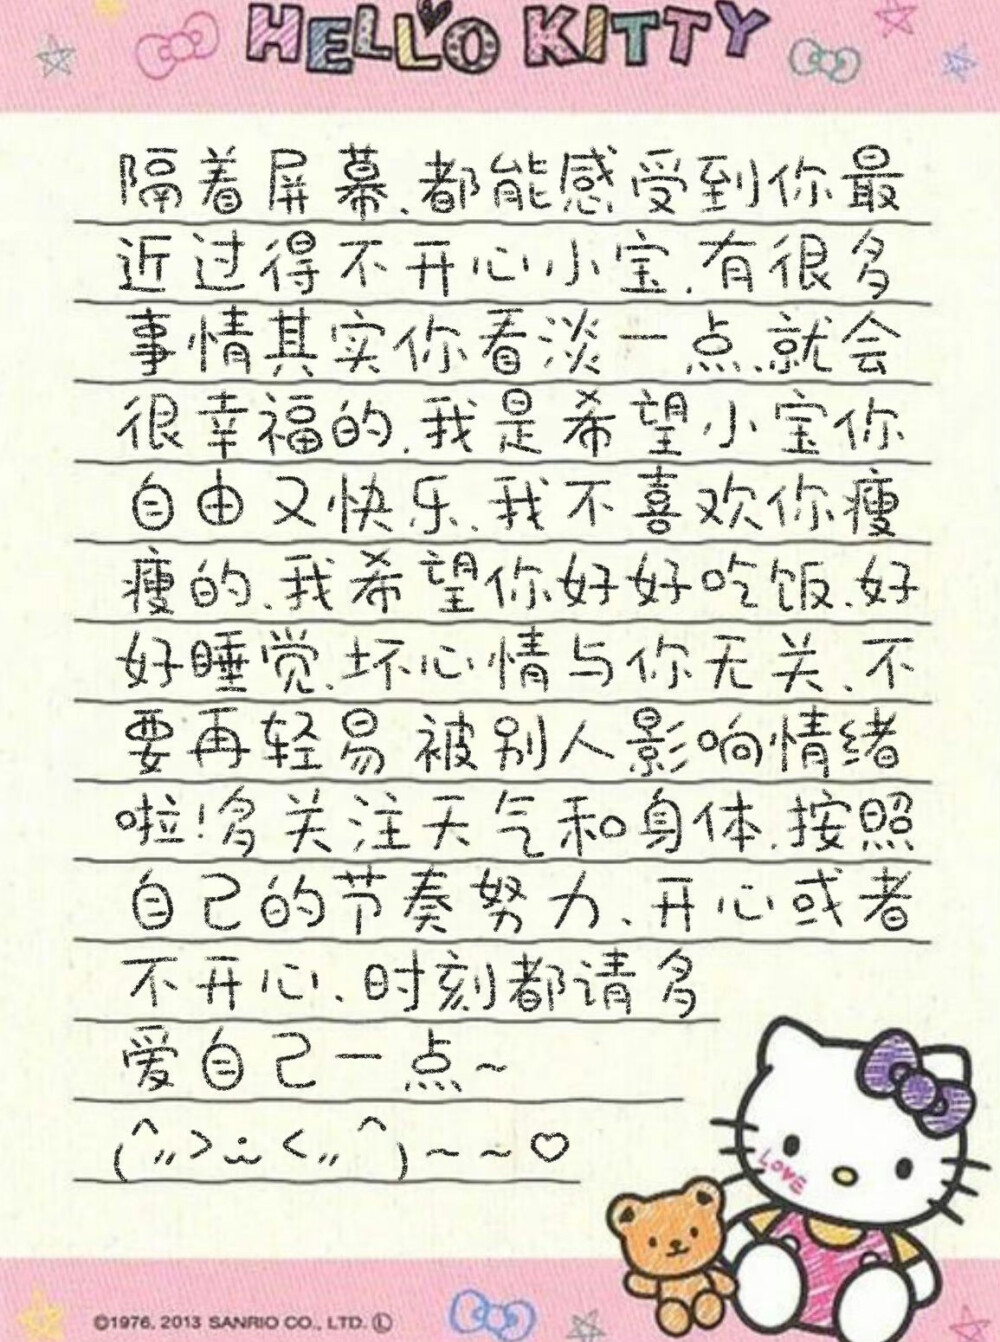 HELLO KITTY
隔着屏幕.都能感受到你最
近过得不开心小宝.有很多
事情其实你看淡一点.就会
很幸福的.我是希望小宝你
自由又快乐.我不喜欢你瘦
瘦的.我希望你好好吃饭.好
好睡觉.坏心情与你无关.不
要再轻易被别人影响情绪
啦!多关注天气和身体.按照
自己的节奏努力、开心或者
不开心、时刻都请多
爱自己一点~
(^〃>ü<〃^)~~♡
LOVE
©1976, 2013 SANRIO CO., LTD. Ⓛ